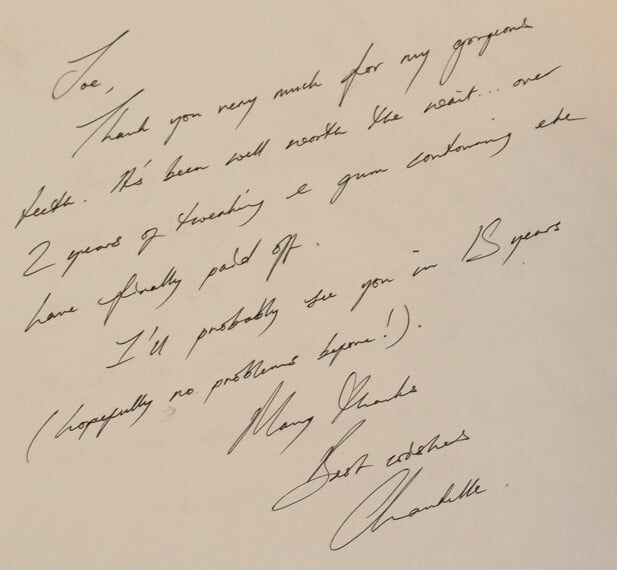 Joe,
Thank you very much for my gorgeous
teeth. It's been well worth the wait... over
2 years of tweaking & gum contouring etc
have finally paid off.
I'll probably see you in 15 years
(hopefully no problems before!).
Many thanks
Best wishes
Chantelle.